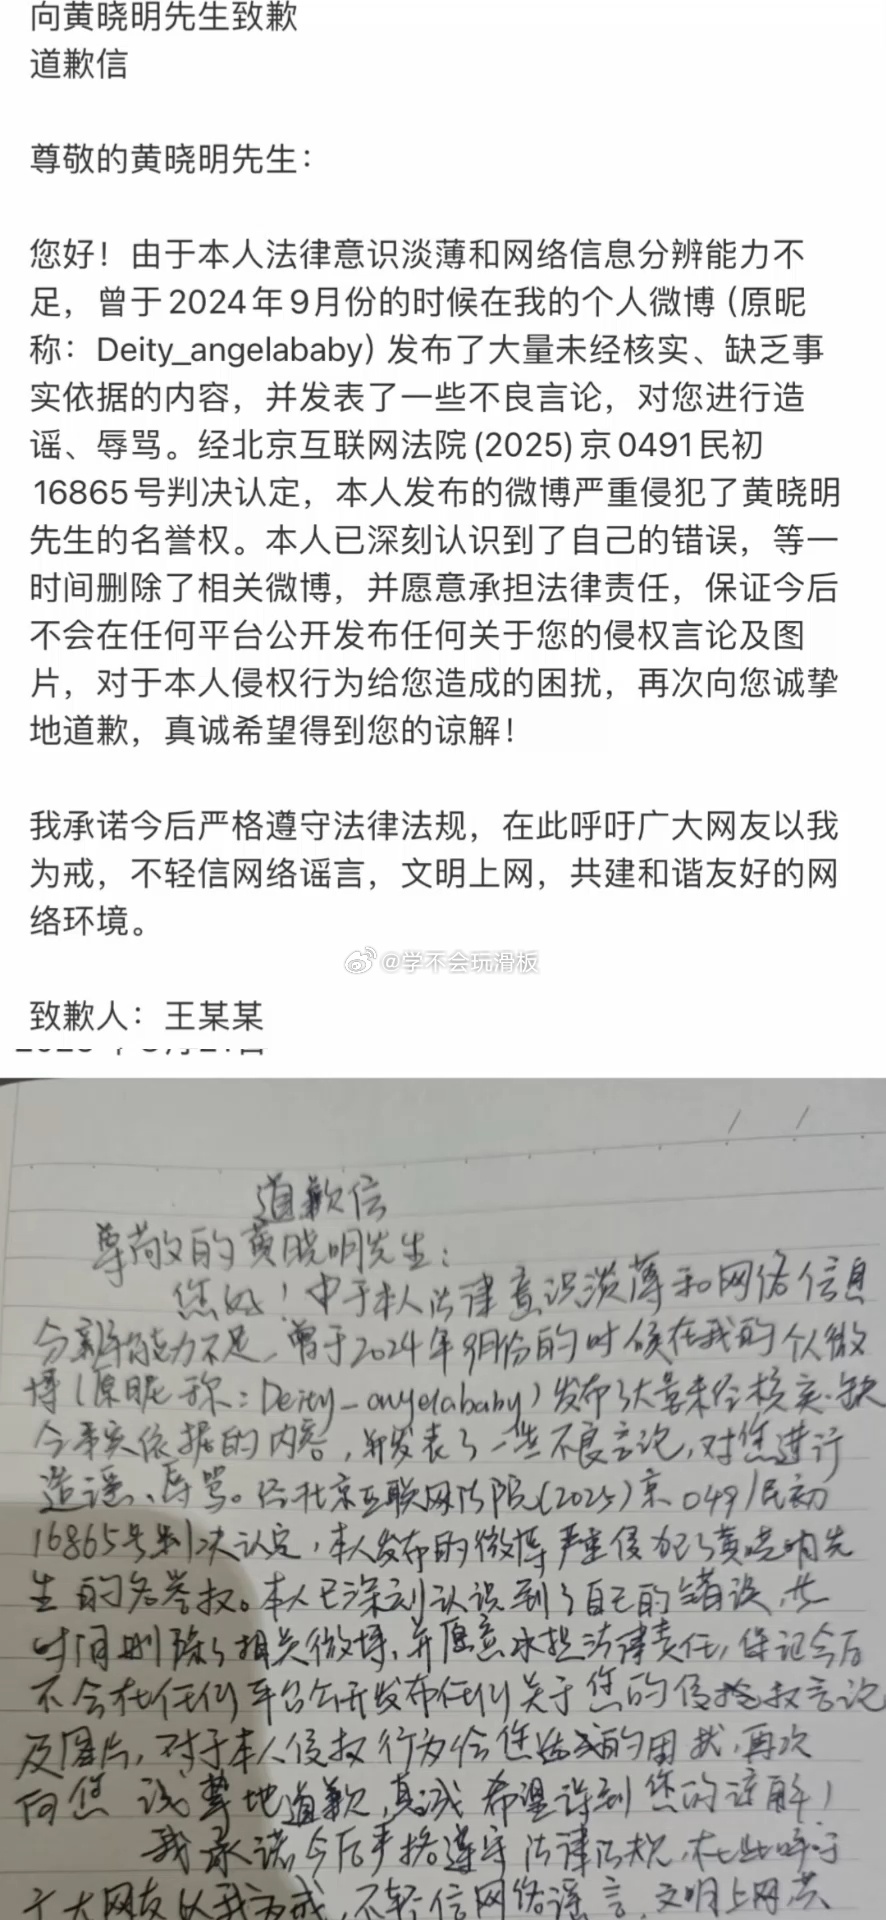 向黄晓明先生致歉
道歉信
尊敬的黄晓明先生：
您好！由于本人法律意识淡薄和网络信息分辨能力不
足，曾于2024年9月份的时候在我的个人微博（原昵
称：Deity_angelababy）发布了大量未经核实、缺乏事
实依据的内容，并发表了一些不良言论，对您进行造
谣、辱骂。经北京互联网法院(2025)京0491民初
16865号判决认定，本人发布的微博严重侵犯了黄晓明
先生的名誉权。本人已深刻认识到了自己的错误，等一
时间删除了相关微博，并愿意承担法律责任，保证今后
不会在任何平台公开发布任何关于您的侵权言论及图
片，对于本人侵权行为给您造成的困扰，再次向您诚挚
地道歉，真诚希望得到您的谅解！
我承诺今后严格遵守法律法规，在此呼吁广大网友以我
为戒，不轻信网络谣言，文明上网，共建和谐友好的网
络环境。
@学不会玩滑板
致歉人：王某某
道歉信
尊敬的黄晓明先生：
您好！由于本人法律意识淡薄和网络信息
分辨能力不足，曾于2024年9月份的时候在我的个人微
博（原昵称：Deity_angelababy）发布了大量未经核实、缺
乏事实依据的内容，并发表了一些不良言论，对您进行
造谣、辱骂。经北京互联网法院(2025)京0491民初
16865号判决认定，本人发布的微博严重侵犯了黄晓明先
生的名誉权。本人已深刻认识到了自己的错误，
时间删除了相关微博，并愿意承担法律责任，保证今后
不会在任何平台公开发布任何关于您的侵权言论
及图片，对于本人侵权行为给您造成的困扰，再次
向您诚挚地道歉，真诚希望得到您的谅解！
我承诺今后严格遵守法律法规，在此呼吁
广大网友以我为戒，不轻信网络谣言，文明上网，共